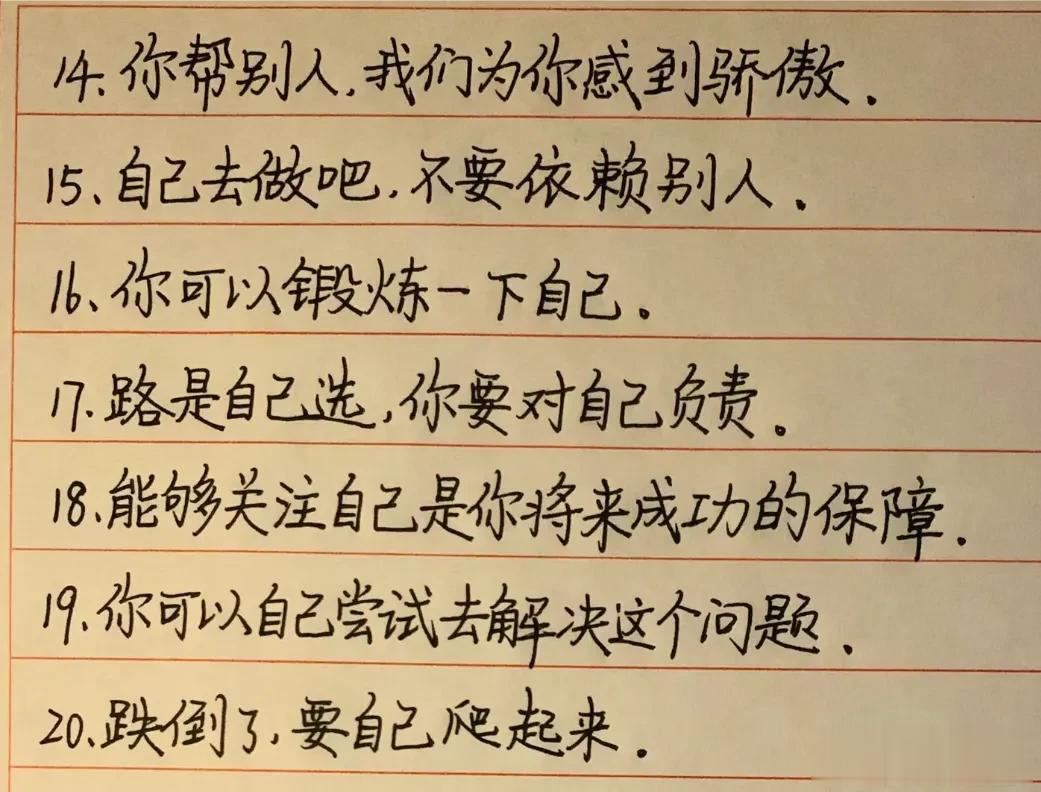 14、你帮别人，我们为你感到骄傲。
15、自己去做吧，不要依赖别人。
16、你可以锻炼一下自己。
17、路是自己选，你要对自己负责。
18、能够关注自己是你将来成功的保障。
19、你可以自己尝试去解决这个问题。
20、跌倒了，要自己爬起来。